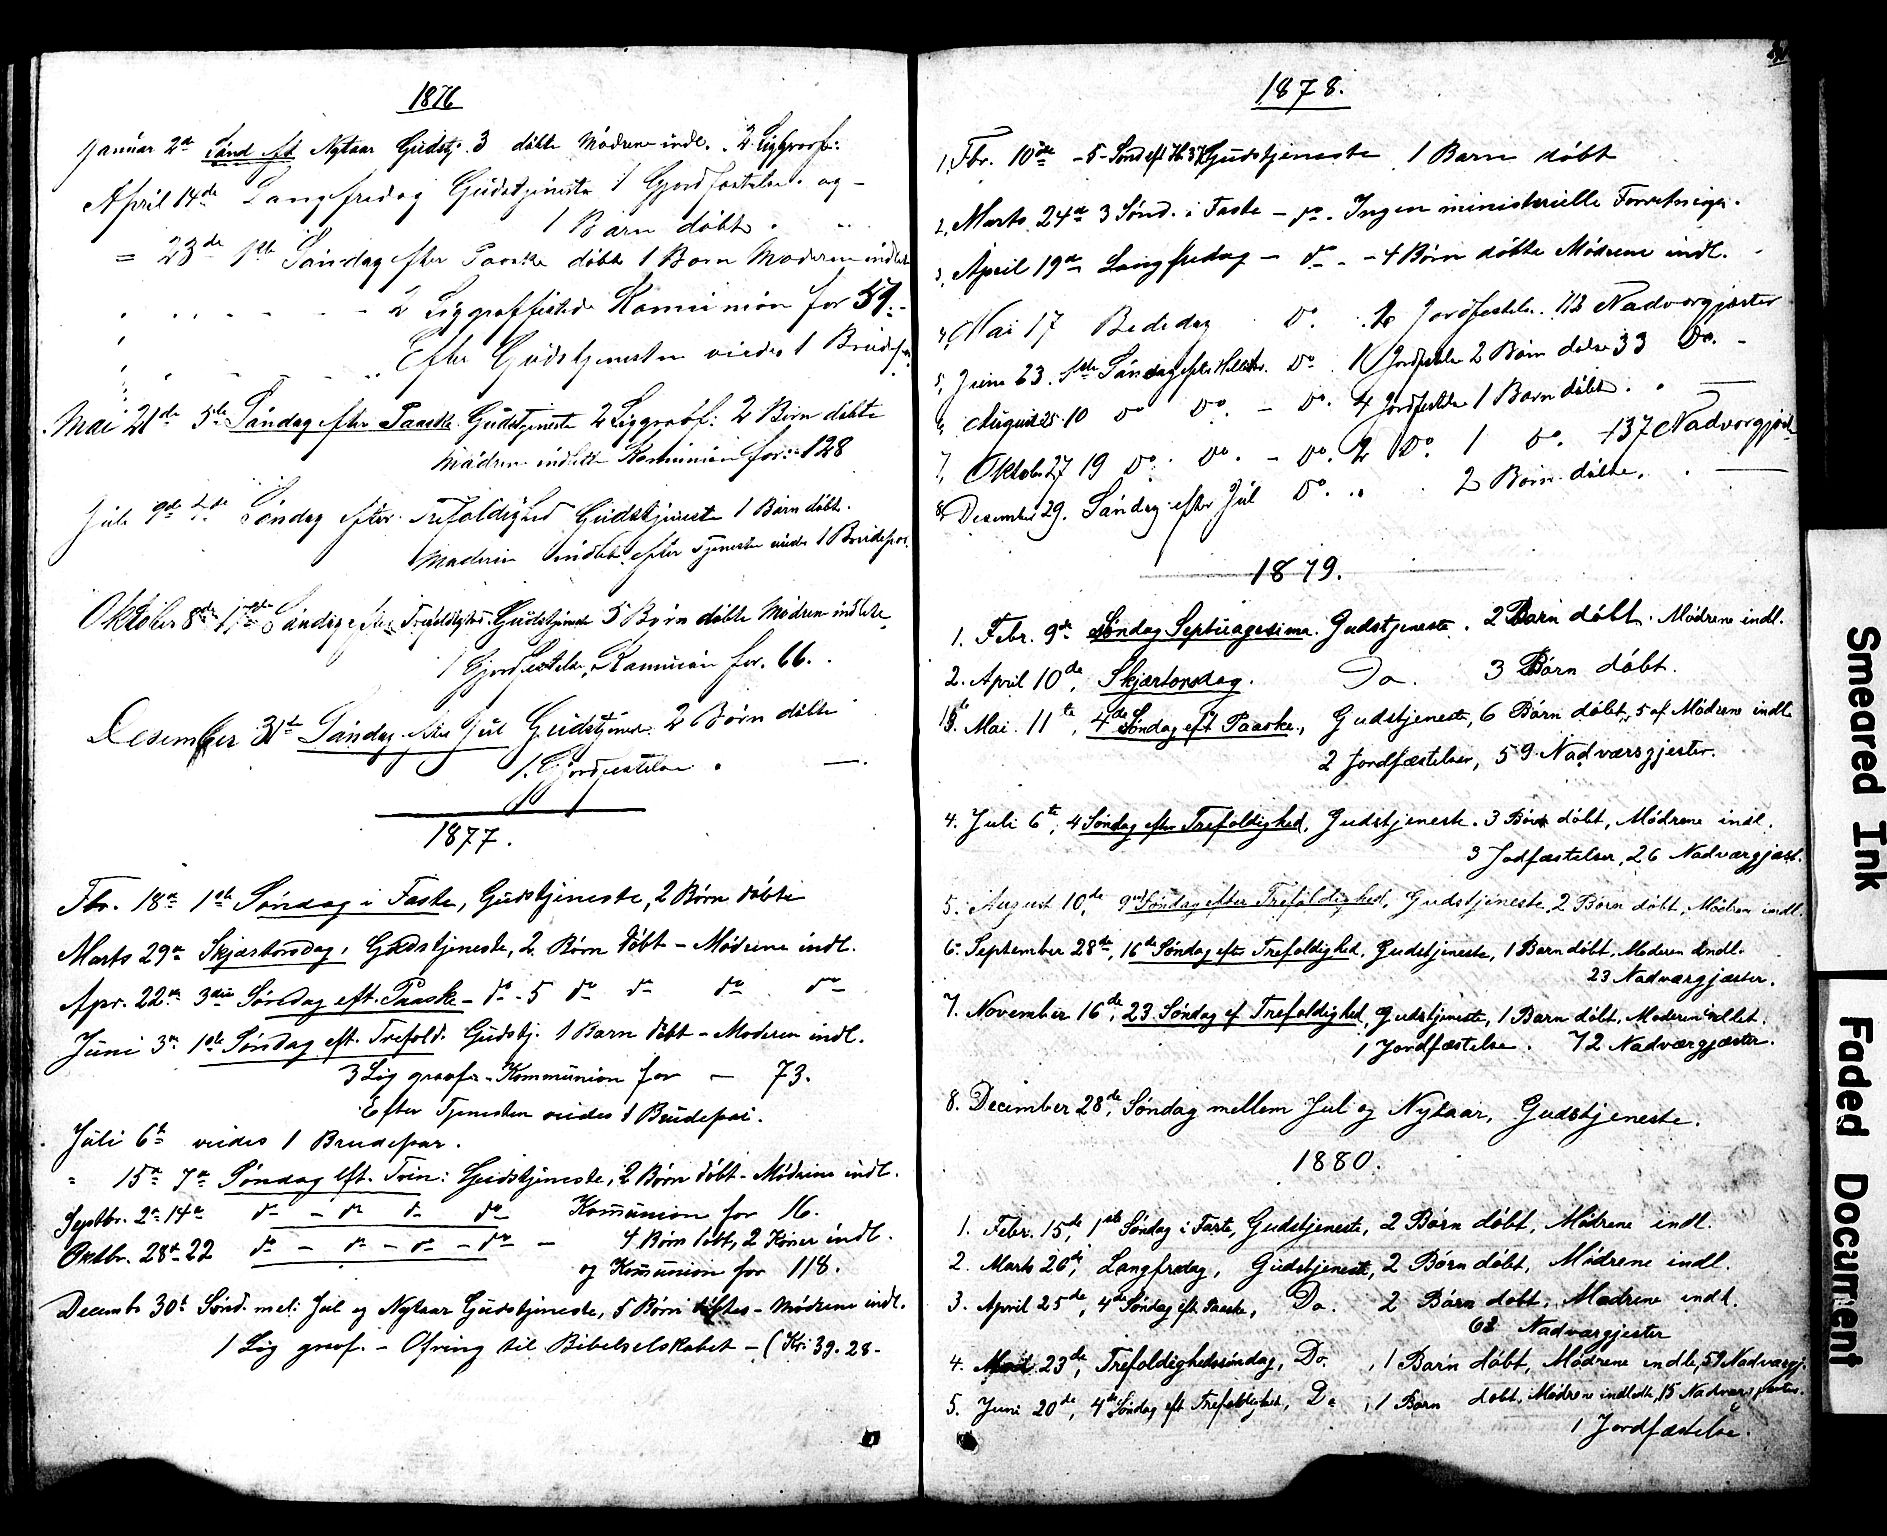 1876
Januar 2den Sønd eft Nytaar Gudstj. 3 døbte Mødrene indl. 2 Liggraf:
April 14de Langfredag Gudstjeneste 1 Gjordfæstelse og -
1 Barn døbt.
= 23de 1ste Søndag efter Paaske døbt 1 Barn Moderen indledt
2 Liggraffæstede Komunion for 57.-
Efter Gudstjenesten viedes 1 Brudepar
Mai 21de 5te Søndag efter Paaske Gudstjeneste 2 Liggraff: 2 Børn døbte
Mødrene indledte Komunion for:- 128
Juli 9de 4de Søndag efter Trefoldighed Gudstjeneste 1 Barn døbt.
Moderen indledt efter Tjeneste viede 1 Brudepar.
Oktober 8de 17de Søndag efter Trefoldighed. Gudstjeneste 5 Børn døbte Mødren indledte
1 Gjordfæstelse, Komunion for. 66.
Desember 31te Søndag efter Jul Gudstjenes. 2 Børn døbte
1. Gjordfæstelse.
1877.
Fbr. 18de 1ste Søndag i Faste, Gudstjeneste, 2 Børn døbte
Marts 29de Skjærtorsdag, Gudstjeneste, 2 Børn døbt - Mødrene indl.
Apr. 22de 3die Søndag eft. Paaske - do - 5 do do do do
Juni 3de 1ste Søndag eft. Trefold. Gudstj. 1 Barn døbt - Moderen indl.
3 Lig graf. - Kommunion for - 73.
Efter Tjenesten viedes 1 Brudepar.
Juli 6te viedes 1 Brudepar.
" 15de 7de Søndag eft. Trin: Gudstjeneste, 2 Børn døbt - Mødrene indl.
Septbr. 2de 14de do - do do do Komunion for 16.
Oktbr. 28de 22 do - do - do - do - 4 Børn døbt, 2 Koner indl.
og Komunion for 118.
Decembr 30te Sønd. mel: Jul og Nytaar Gudstjeneste, 5 Børn døbtes - Mødrene indl.
1 Lig graf. - Ofring til Bibelselskabet - (Kr. 39. 28 -
1878.
1. Fbr. 10de - 5 - Sønd eft H3K Gudstjeneste 1 Barn døbt
2. Marts 24de 3 Sønd. i Faste - do - Ingen ministerielle Forretninger.
3. April 19de Langfredag - do - 4 Børn døbte Mødrene indl.
4. Mai 17 Bededag Do. 2 Jordfestelse. 112 Nadvorgjæster
5. Juni 23. 1ste Søndag efter Do. 1 Jordfestelse 2 Børn døbte 33 Do. -
6. August 25 10 Do Do. - Do. 4 Jordfestelse 1 Barn døbt.
7. Oktober 27 19 Do. Do. - Do. 2 Do. 1 Do. 137 Nadvorgjæst
8. Desember 29. Søndag efter Jul Do. 2 Børn døbte.
1879.
1. Febr. 9de Søndag Septuagesima. Gudstjeneste. 2 Børn døbt. Mødrene indl.
2. April 10de, Skjærtorsdag. Do. 3 Børn døbt.
3. Mai. 11te, 4de Søndag eft Paaske, Gudstjeneste, 6 Børn døbt, 5 af Mødrene indl.
2 Jordfæstelser, 59 Nadværsgjester.
4. Juli 6te, 4 Søndag efter Trefoldighed, Gudstjeneste. 3 Børn døbt, Mødrene indl.
3 Jodfæstelser, 26 Nadværgjæst.
5. August 10de, 9nd Søndag efter Trefoldighed, Gudstjeneste, 2 Børn døbt, Mødren indl.
6. September 28de, 16de Søndag efter Trefoldighed, Gudstjeneste, 1 Barn døbt, Moderen indl.
23 Nadværgjæster.
7. November 16de, 23. Søndag ef Trefoldighed, Gudstjeneste, 1 Barn døbt, Moderen indlet.
1 Jordfæstelse. 72 Nadværgjæster.
8. December 28de, Søndag mellem Jul og Nytaar, Gudstjeneste.
1880.
1. Febr. 15de, 1ste Søndag i Faste, Gudstjeneste, 2 Børn døbt, Mødrene indl.
2. Marts 26de, Langfredag, Gudstjeneste, 2 Børn døbt, Mødrene indl.
3. April 25de, 4de Søndag eft Paaske, Do. 2 Børn døbt, Mødrene indl.
62 Nadværgjester
4. Mai 23de, Trefoldighedssøndag, Do., 1 Barn døbt, Mødrene indle, 59 Nadværgj.
5. Juni 20de, 4de Søndag eft Trefoldighed, Do, 1 Barn døbt, Mødrene indledt, 15 Nadværsgjæster.
1 Jordfæstelse.
Smeared Ink
Faded Document